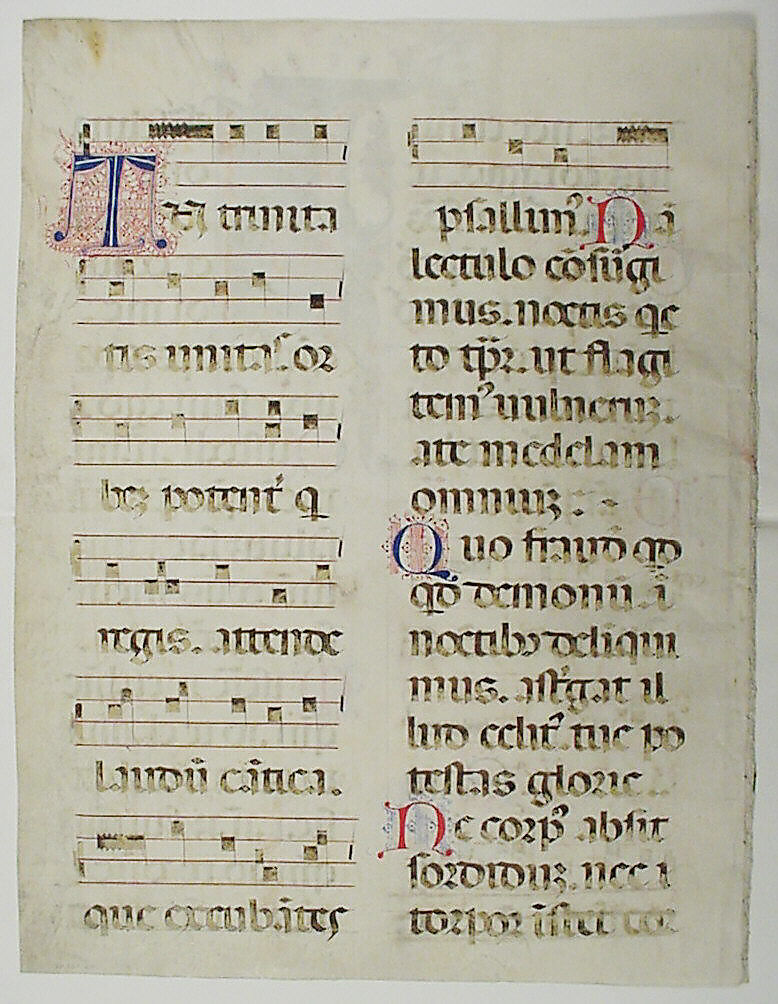 TU trinita
tis unitas. or
bez potent' q
regis. attende
laudū cātica.
que excubātes
psallim' Nā
lectulo cōsurgi
mus. noctis qe
to tp̄r. ut flagi
tem' uulneruz.
a te medelam
omniuz.
Quo fraud qd
qd demonū ī
noctib; deliqui
mus. abst'gat il
lud celit' tue po
testas glorie
Ne corp' absit
sordiduz. nec i
torpor īstet cor